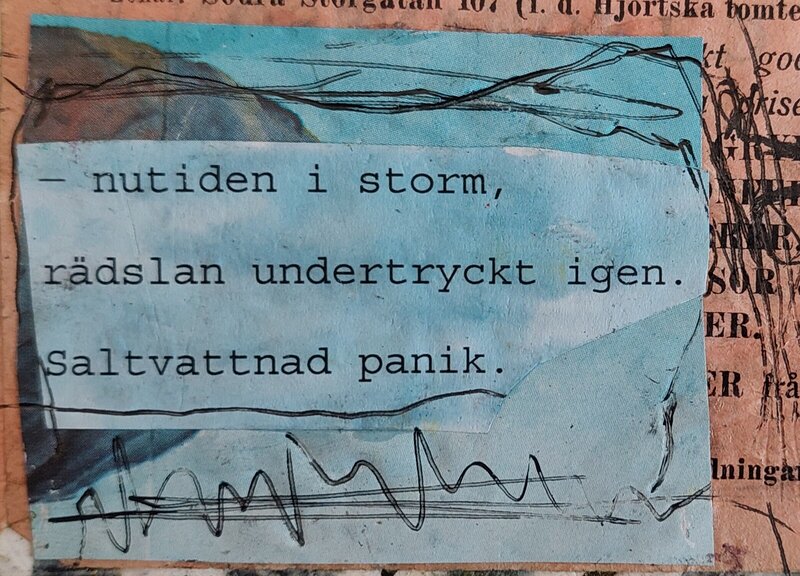 Södra Storgatan 107 (i. d. Hjortska tomte
— nutiden i storm,
rädslan undertryckt igen.
Saltvattnad panik.
SOR
ER.
ER frå
dningar